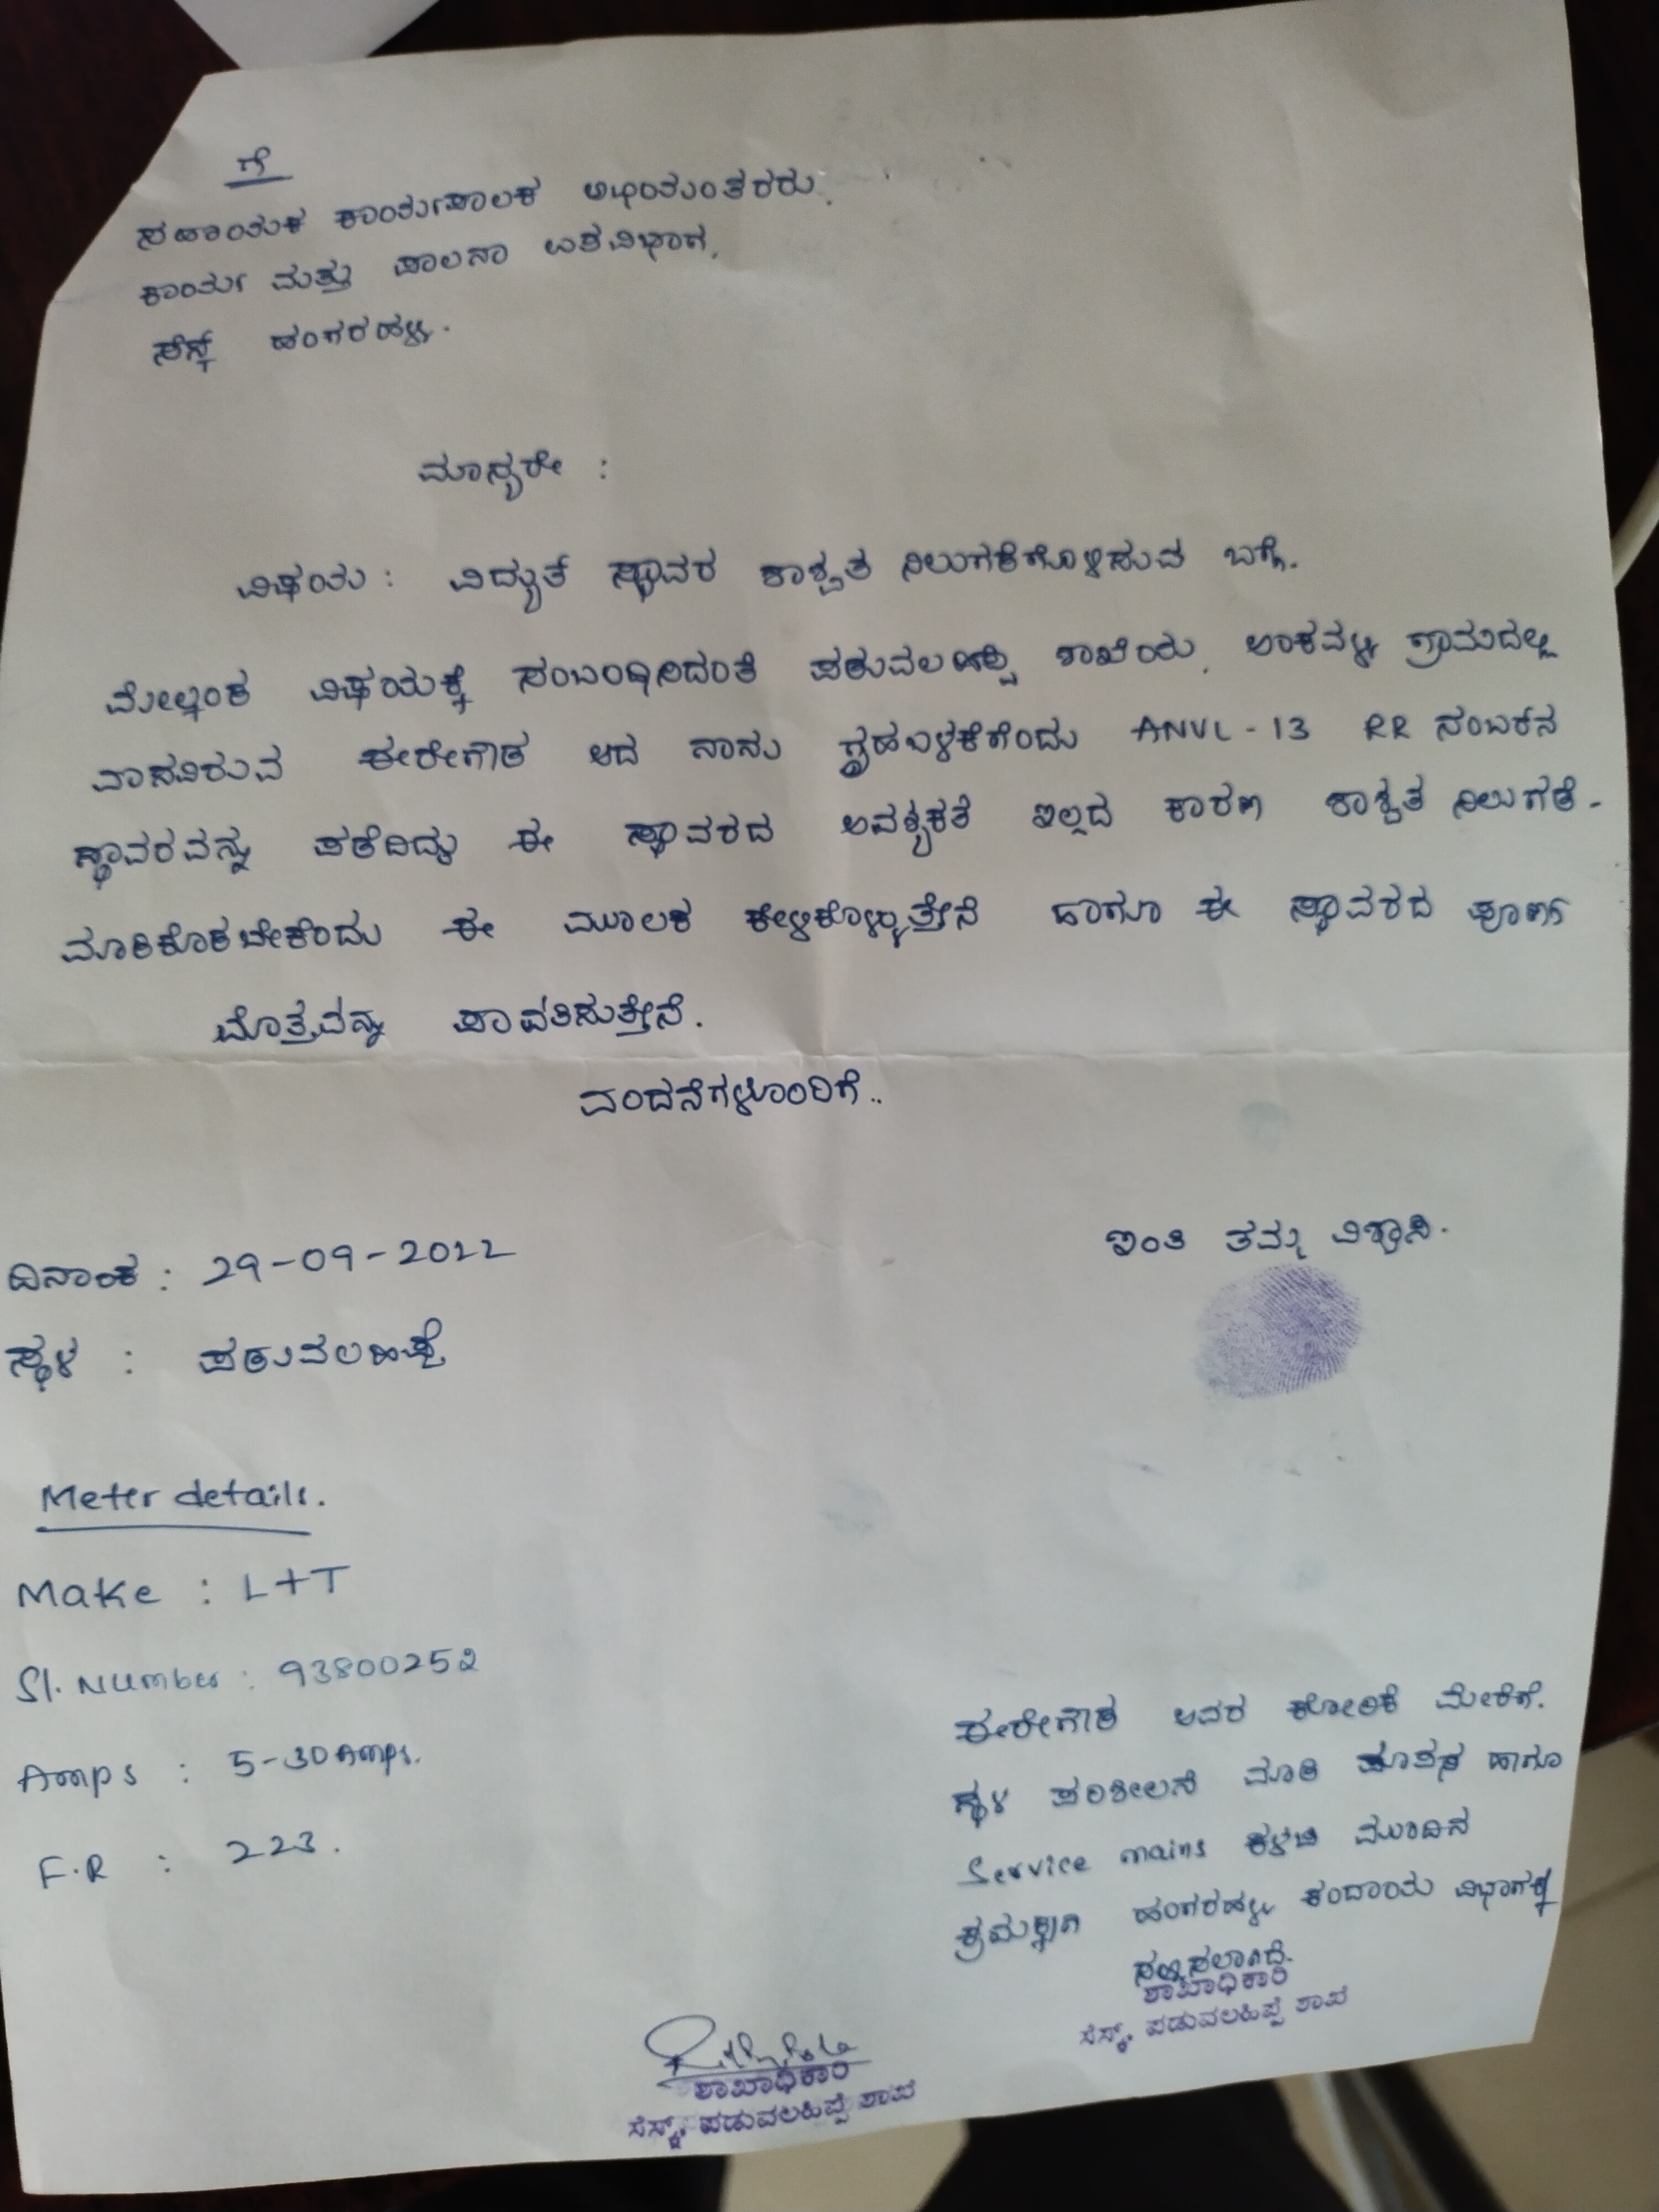 ಗೆ
ಸಹಾಯಕ ಕಾರ್ಯಪಾಲಕ ಅಭಿಯಂತರರು,
ಕಾರ್ಯ ಮತ್ತು ಪಾಲನಾ ಉಪವಿಭಾಗ,
ಸೆಸ್ಕ್ ಹಂಗರಹಳ್ಳಿ.
ಮಾನ್ಯರೇ :
ವಿಷಯ : ವಿದ್ಯುತ್ ಸ್ಥಾವರ ಶಾಶ್ವತ ನಿಲುಗಡೆಗೊಳಿಸುವ ಬಗ್ಗೆ.
ಮೇಲ್ಕಂಡ ವಿಷಯಕ್ಕೆ ಸಂಬಂಧಿಸಿದಂತೆ ಪಡುವಲಹಿಪ್ಪೆ ಶಾಖೆಯ, ಅಂಕವಳ್ಳಿ ಗ್ರಾಮದಲ್ಲಿ
ವಾಸವಿರುವ ಈರೇಗೌಡ ಆದ ನಾನು ಗೃಹಬಳಕೆಗೆಂದು ANVL-13 RR ನಂಬರ್‌ನ
ಸ್ಥಾವರವನ್ನು ಪಡೆದಿದ್ದು ಈ ಸ್ಥಾವರದ ಅವಶ್ಯಕತೆ ಇಲ್ಲದ ಕಾರಣ ಶಾಶ್ವತ ನಿಲುಗಡೆ-
ಮಾಡಿಕೊಡಬೇಕೆಂದು ಈ ಮೂಲಕ ಕೇಳಿಕೊಳ್ಳುತ್ತೇನೆ ಹಾಗೂ ಈ ಸ್ಥಾವರದ ಪೂರ್ಣ
ಮೊತ್ತವನ್ನು ಪಾವತಿಸುತ್ತೇನೆ.
ವಂದನೆಗಳೊಂದಿಗೆ..
ಇಂತಿ ತಮ್ಮ ವಿಶ್ವಾಸಿ.
ದಿನಾಂಕ : 29-09-2022
ಸ್ಥಳ : ಪಡುವಲಹಿಪ್ಪೆ
Meter details.
Make : L+T
Sl. Number : 93800252
Amps : 5-30Amps.
F.R : 223.
ಈರೇಗೌಡ ಅವರ ಕೋರಿಕೆ ಮೇರೆಗೆ.
ಸ್ಥಳ ಪರಿಶೀಲನೆ ಮಾಡಿ ಮಾಪಕ ಹಾಗೂ
Service mains ಕಳಚಿ ಮುಂದಿನ
ಕ್ರಮಕ್ಕಾಗಿ ಹಂಗರಹಳ್ಳಿ ಕಂದಾಯ ವಿಭಾಗಕ್ಕೆ
ಸಲ್ಲಿಸಲಾಗಿದೆ.
ಶಾಖಾಧಿಕಾರಿ
ಸೆಸ್ಕ್, ಪಡುವಲಹಿಪ್ಪೆ ಶಾಖೆ
ಶಾಖಾಧಿಕಾರಿ
ಸೆಸ್ಕ್, ಪಡುವಲಹಿಪ್ಪೆ ಶಾಖೆ